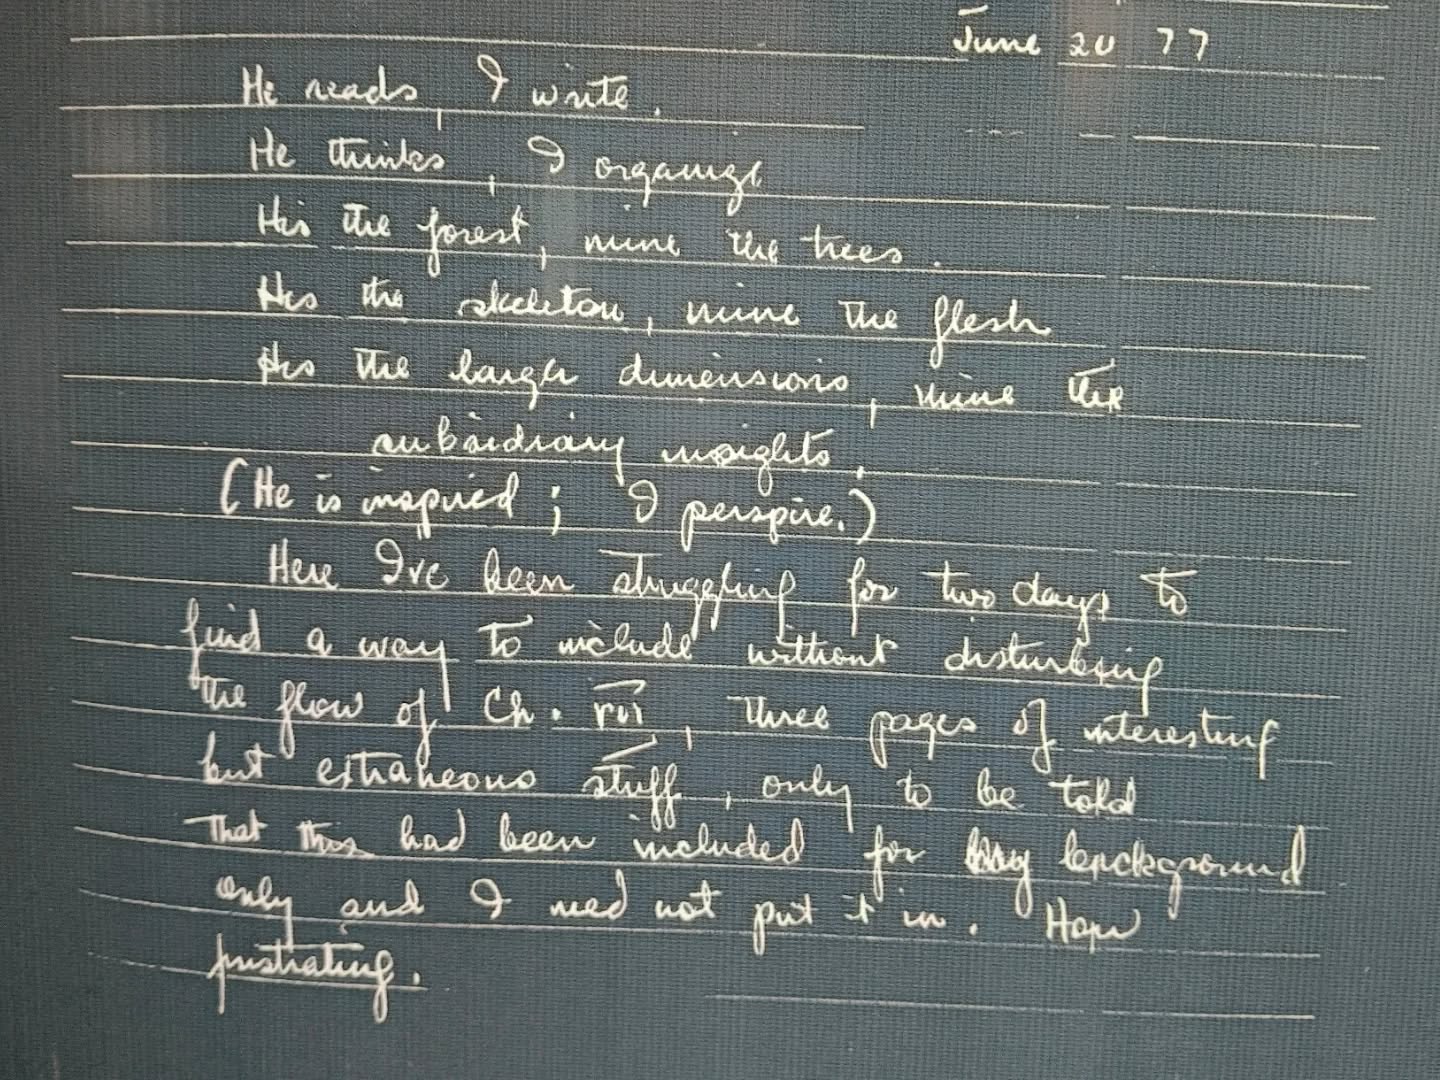 June 20 77
He reads, I write.
He thinks, I organize
His the forest, mine the trees.
His the skeleton, mine the flesh
His the larger dimensions, mine the
subsidiary insights.
(He is inspired; I perspire.)
Here I've been struggling for two days to
find a way to include without disturbing
the flow of Ch. , three pages of interesting
but extraneous stuff, only to be told
that this had been included for background
only and I need not put it in. How
frustrating.